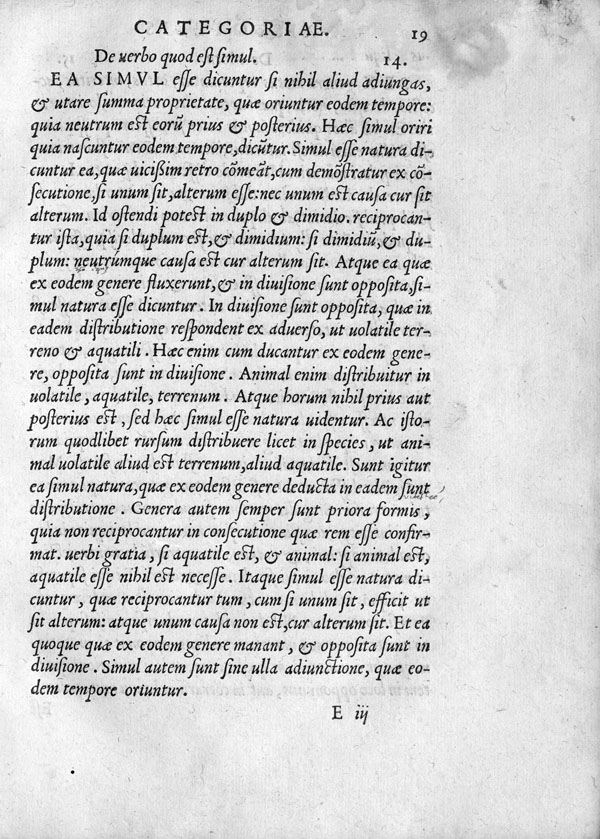 CATEGORIAE. 19
De uerbo quod est simul. 14.
EA SIMVL esse dicuntur si nihil aliud adiungas,
& utare summa proprietate, quæ oriuntur eodem tempore:
quia neutrum est eorũ prius & posterius. Hæc simul oriri
quia nascuntur eodem tempore, dicũtur. Simul esse natura di-
cuntur ea, quæ uicißim retro cõmeãt, cum demõstratur ex cõ-
secutione, si unum sit, alterum esse: nec unum est causa cur sit
alterum. Id ostendi potest in duplo & dimidio. reciprocan-
tur ista, quia si duplum est, & dimidium: si dimidiũ, & du-
plum: neutrúmque causa est cur alterum sit. Atque ea quæ
ex eodem genere fluxerunt, & in diuisione sunt opposita, si-
mul natura esse dicuntur. In diuisione sunt opposita, quæ in
eadem distributione respondent ex aduerso, ut uolatile ter-
reno & aquatili. Hæc enim cum ducantur ex eodem gene-
re, opposita sunt in diuisione. Animal enim distribuitur in
uolatile, aquatile, terrenum. Atque horum nihil prius aut
posterius est, sed hæc simul esse natura uidentur. Ac isto-
rum quodlibet rursum distribuere licet in species, ut ani-
mal uolatile aliud est terrenum, aliud aquatile. Sunt igitur
ea simul natura, quæ ex eodem genere deducta in eadem sunt
distributione. Genera autem semper sunt priora formis,
quia non reciprocantur in consecutione quæ rem esse confir-
mat. uerbi gratia, si aquatile est, & animal: si animal est,
aquatile esse nihil est necesse. Itaque simul esse natura di-
cuntur, quæ reciprocantur tum, cum si unum sit, efficit ut
sit alterum: atque unum causa non est, cur alterum sit. Et ea
quoque quæ ex eodem genere manant, & opposita sunt in
diuisione. Simul autem sunt sine ulla adiunctione, quæ eo-
dem tempore oriuntur.
E iij